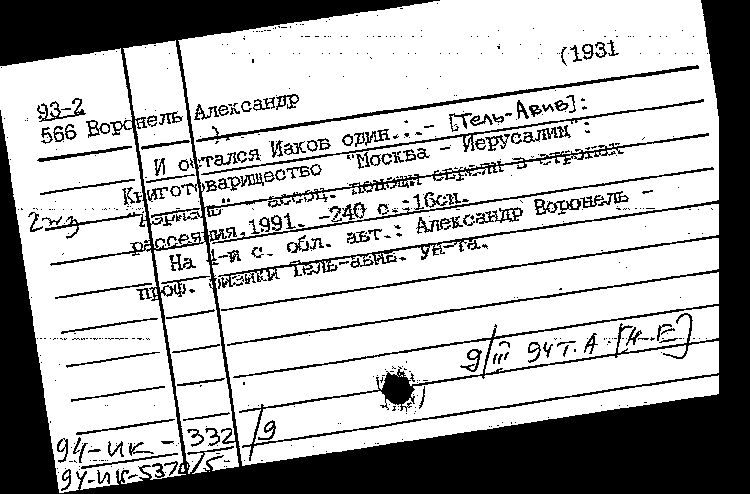 (1931
93-2
566 Воронель Александр
).
И остался Иаков один...- [Тель-Авив]:
Книготоварищество "Москва - Иерусалим":
- ассоц. помощи евреям в странах
рассеяния.1991. -240 с.:16см.
На 4-й с. обл. авт.: Александр Воронель -
проф. физики Тель-авив. ун-та.
2жз
9/III 94 Т.А [Н.Е]
94-ик - 332/9
94-ик-5370/5